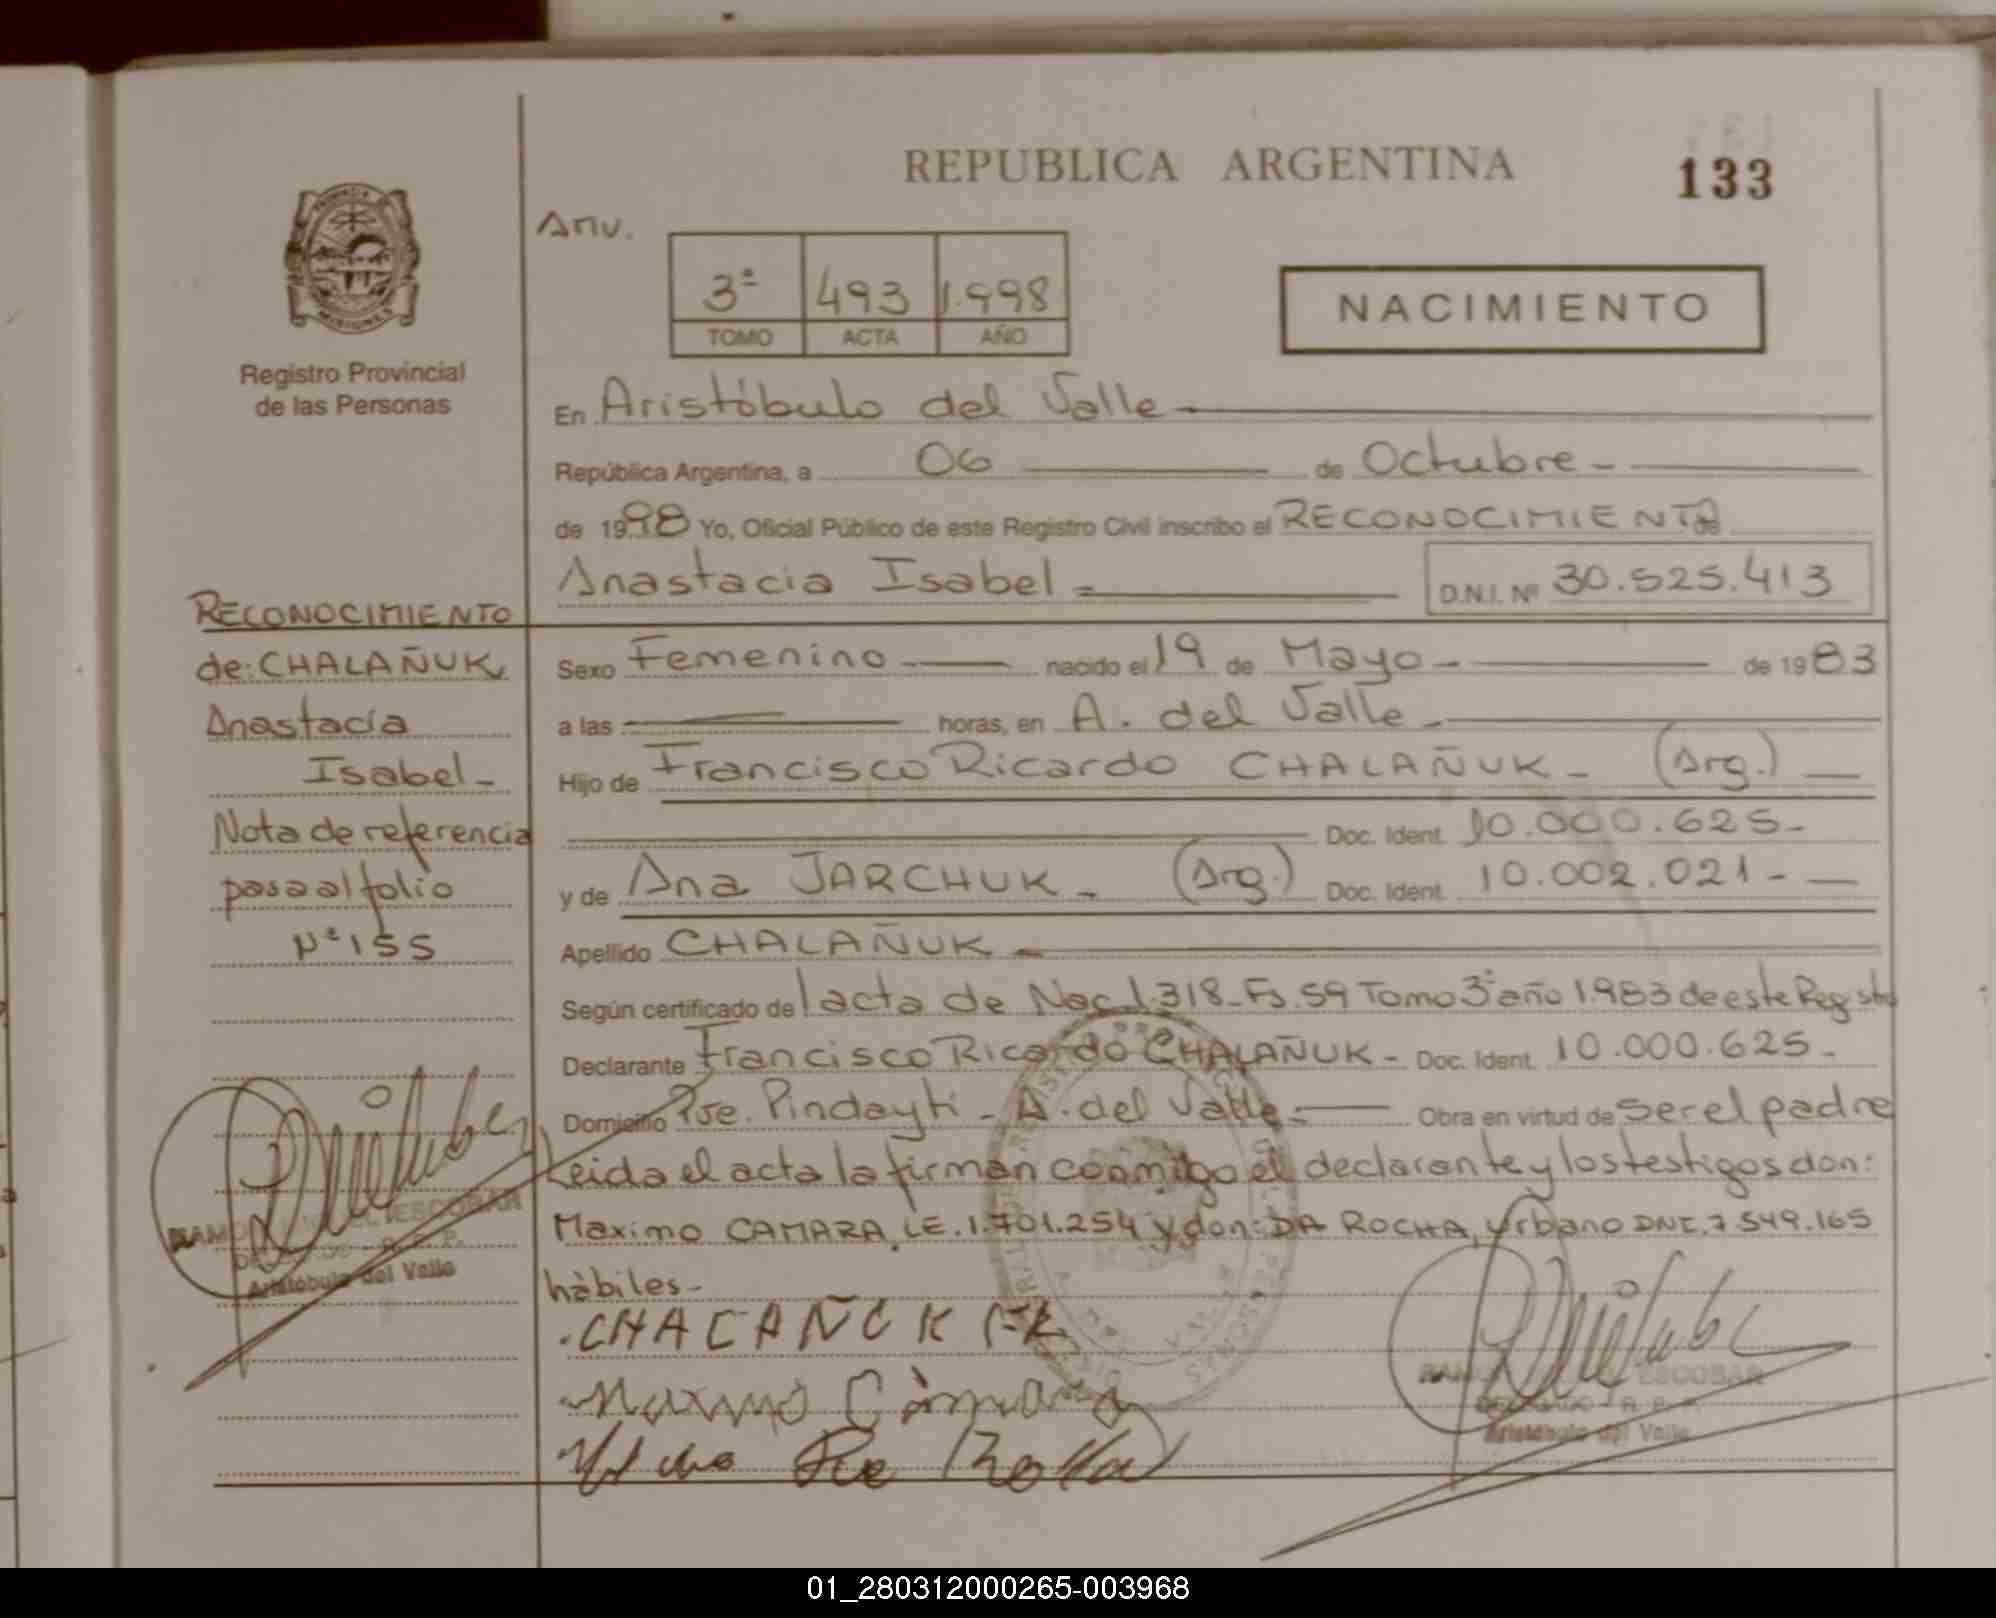 REPUBLICA ARGENTINA
133
Anv.
3ª 493 1.998
TOMO ACTA AÑO
NACIMIENTO
MISIONES
Registro Provincial
de las Personas
En Aristóbulo del Valle
República Argentina, a 06 de Octubre
de 1998 Yo, Oficial Público de este Registro Civil inscribo el RECONOCIMIENTO de
Anastacia Isabel D.N.I. Nº 30.525.413
RECONOCIMIENTO
de: CHALAÑUK,
Anastacia
Isabel-
Nota de referencia
pasa al folio
Nº 155
Sexo Femenino nacido el 19 de Mayo de 1983
a las horas, en A. del Valle
Hijo de Francisco Ricardo CHALAÑUK - (Arg.)
Doc. Ident. 10.000.625-
y de Ana JARCHUK - (Arg.) Doc. Ident. 10.002.021-
Apellido CHALAÑUK
Según certificado de acta de Nac 1.318-Fs.59 Tomo 3º año 1.983 de este Registro
Declarante Francisco Ricardo CHALAÑUK - Doc. Ident. 10.000.625-
Domicilio Pje. Pindayti - A. del Valle Obra en virtud de ser el padre
Leida el acta la firman conmigo el declarante y los testigos don:
Maximo CAMARA, LE. 1.701.254 y don: DA ROCHA, Urbano DNI. 7.549.165
hàbiles-
CHACAÑUK FR
Maximo Cámara
ESCOBAR
Aristóbulo del Valle
ESCOBAR
DELEGADO - R. P. P.
Aristóbulo del Valle
01_280312000265-003968